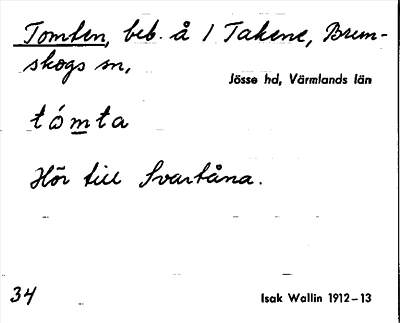 Tomten, beb. å 1 Takene, Brun-
skogs sn,
Jösse hd, Värmlands län
tómta
Hör till Svartåna.
34
Isak Wallin 1912–13